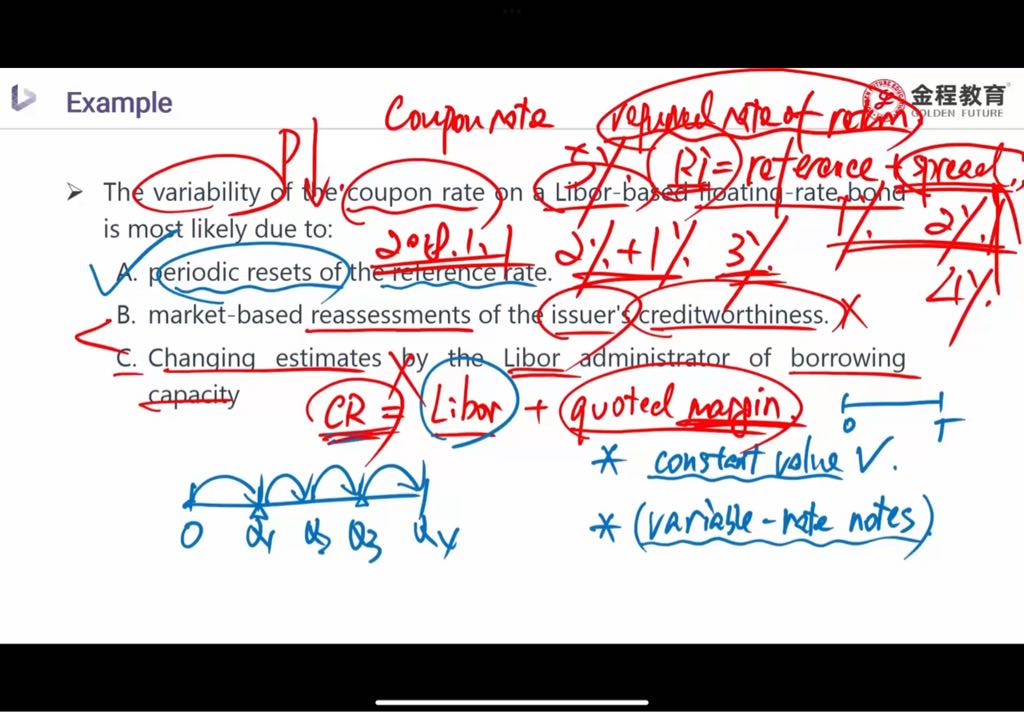 Example
金程教育
GOLDEN FUTURE
Coupon rate
required rate of return
P↓
5%
Ri = reference + spread
The variability of the coupon rate on a Libor-based floating-rate bond
is most likely due to:
2018.1.1
2% + 1%
3%
1%
2%
4%
A. periodic resets of the reference rate.
B. market-based reassessments of the issuer's creditworthiness.
C. Changing estimates by the Libor administrator of borrowing
capacity
CR = Libor + quoted margin
0 T
* constant value V.
* (variable-rate notes)
0 Q1 Q2 Q3 Q4